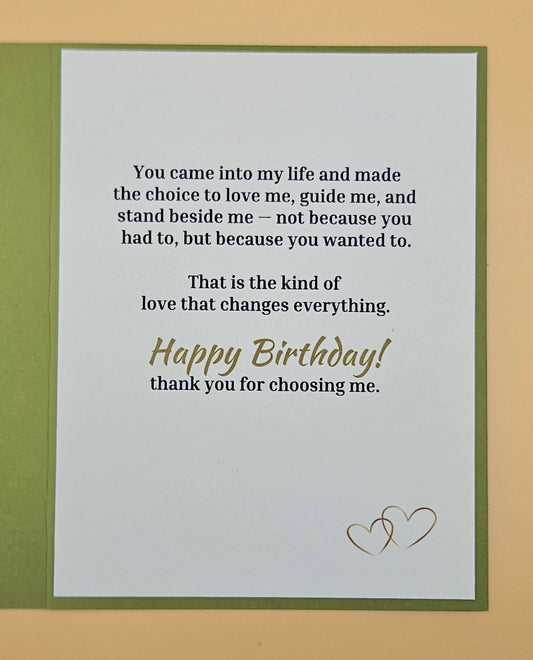 You came into my life and made
the choice to love me, guide me, and
stand beside me — not because you
had to, but because you wanted to.
That is the kind of
love that changes everything.
Happy Birthday!
thank you for choosing me.